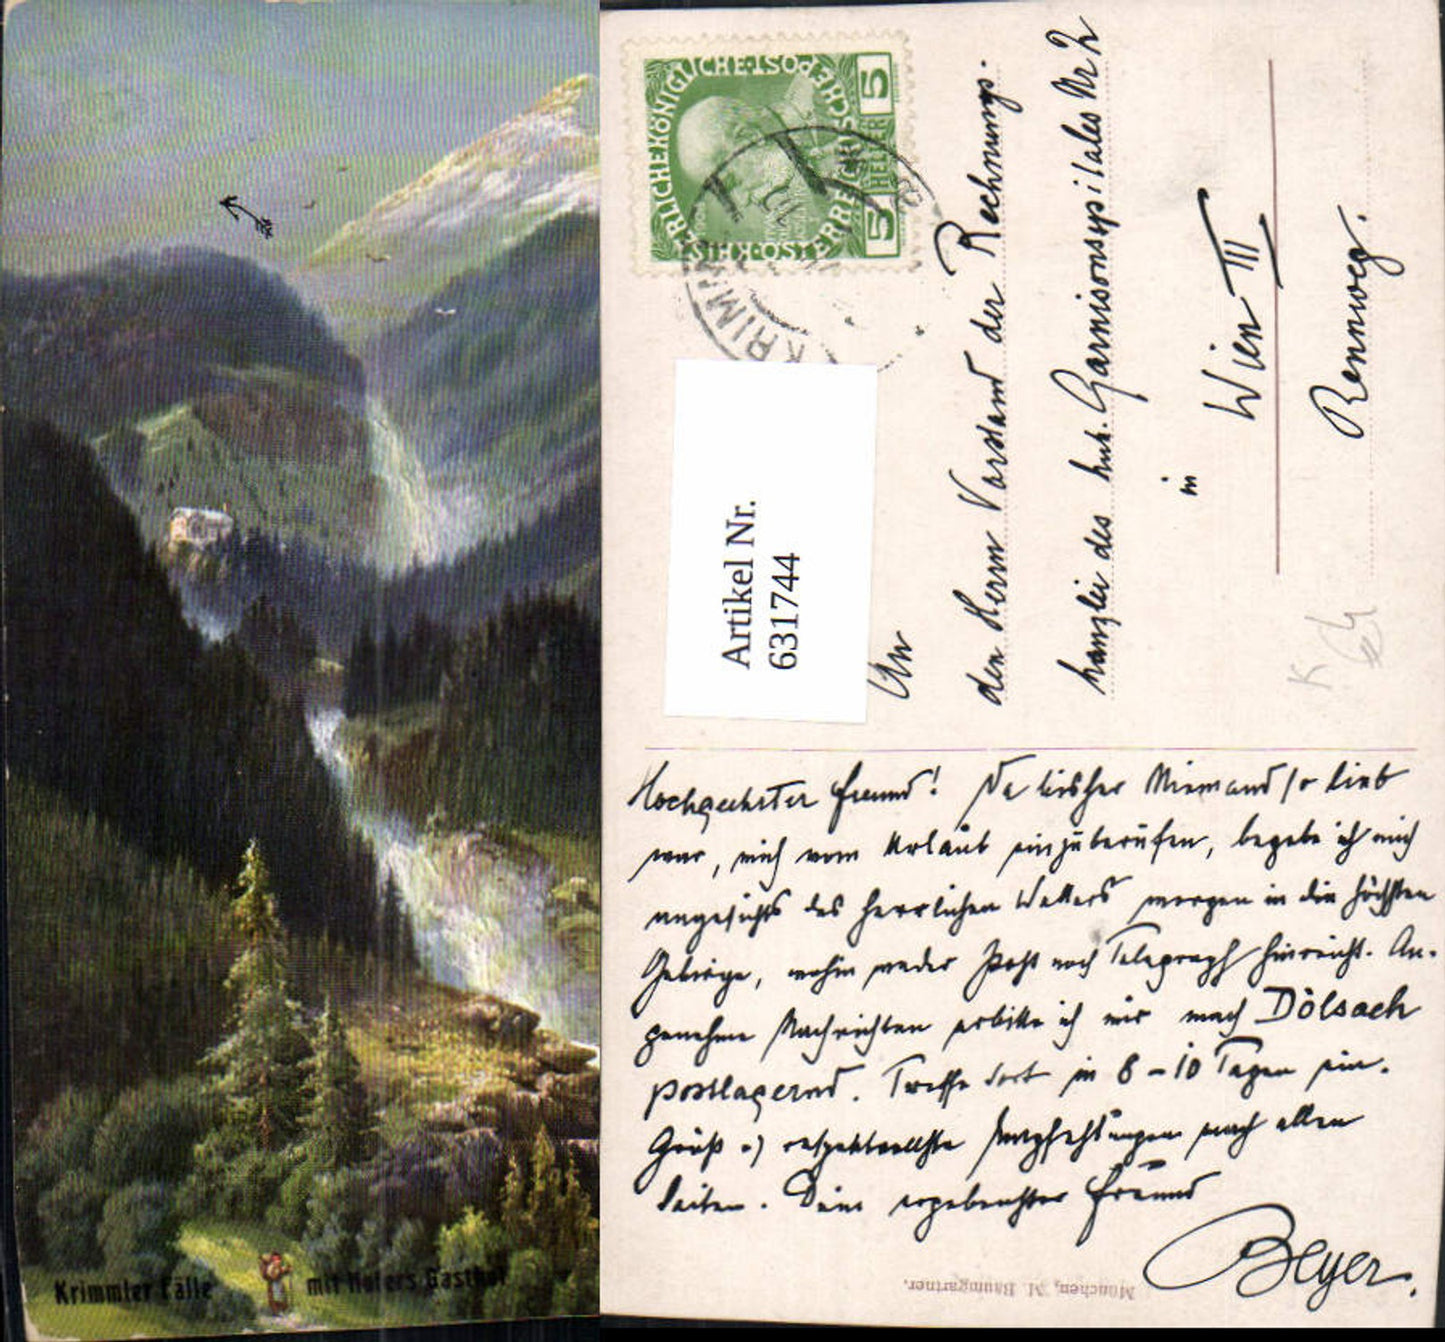 Krimmler Fälle mit Hofers Gasthof
KAISERLICHE KÖNIGLICHE ÖSTERREICHISCHE POST
5 HELLER 5
KRIMML
Artikel Nr.
631744
An
den Herrn Vorstand der Rechnungs-
kanzlei des k.u.k. Garnisonsspitales Nr 2
in
Wien III
Rennweg.
Hochgeehrter Freund! Da bisher Niemand so lieb
war, mich vom Urlaub einzuberufen, begebe ich mich
angesichts des herrlichen Wetters morgen in die höchsten
Gebirge, wohin weder Post noch Telegraph hinreicht. An-
genehme Nachrichten erbitte ich mir nach Dölsach
postlagernd. Treffe dort in 8-10 Tagen ein.
Gruß u. respektvollste Empfehlungen nach allen
Seiten. Dein ergebenster Freund
Beyer.
München, M. Baumgartner.